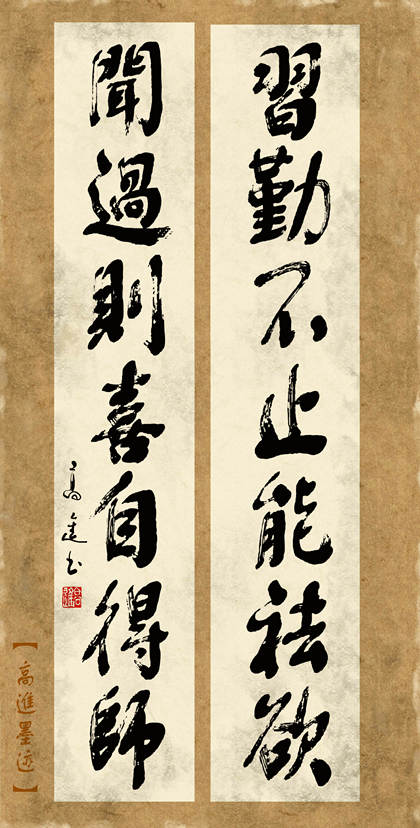 習勤不止能祛欲
聞過則喜自得師
高進书
【高進墨迹】